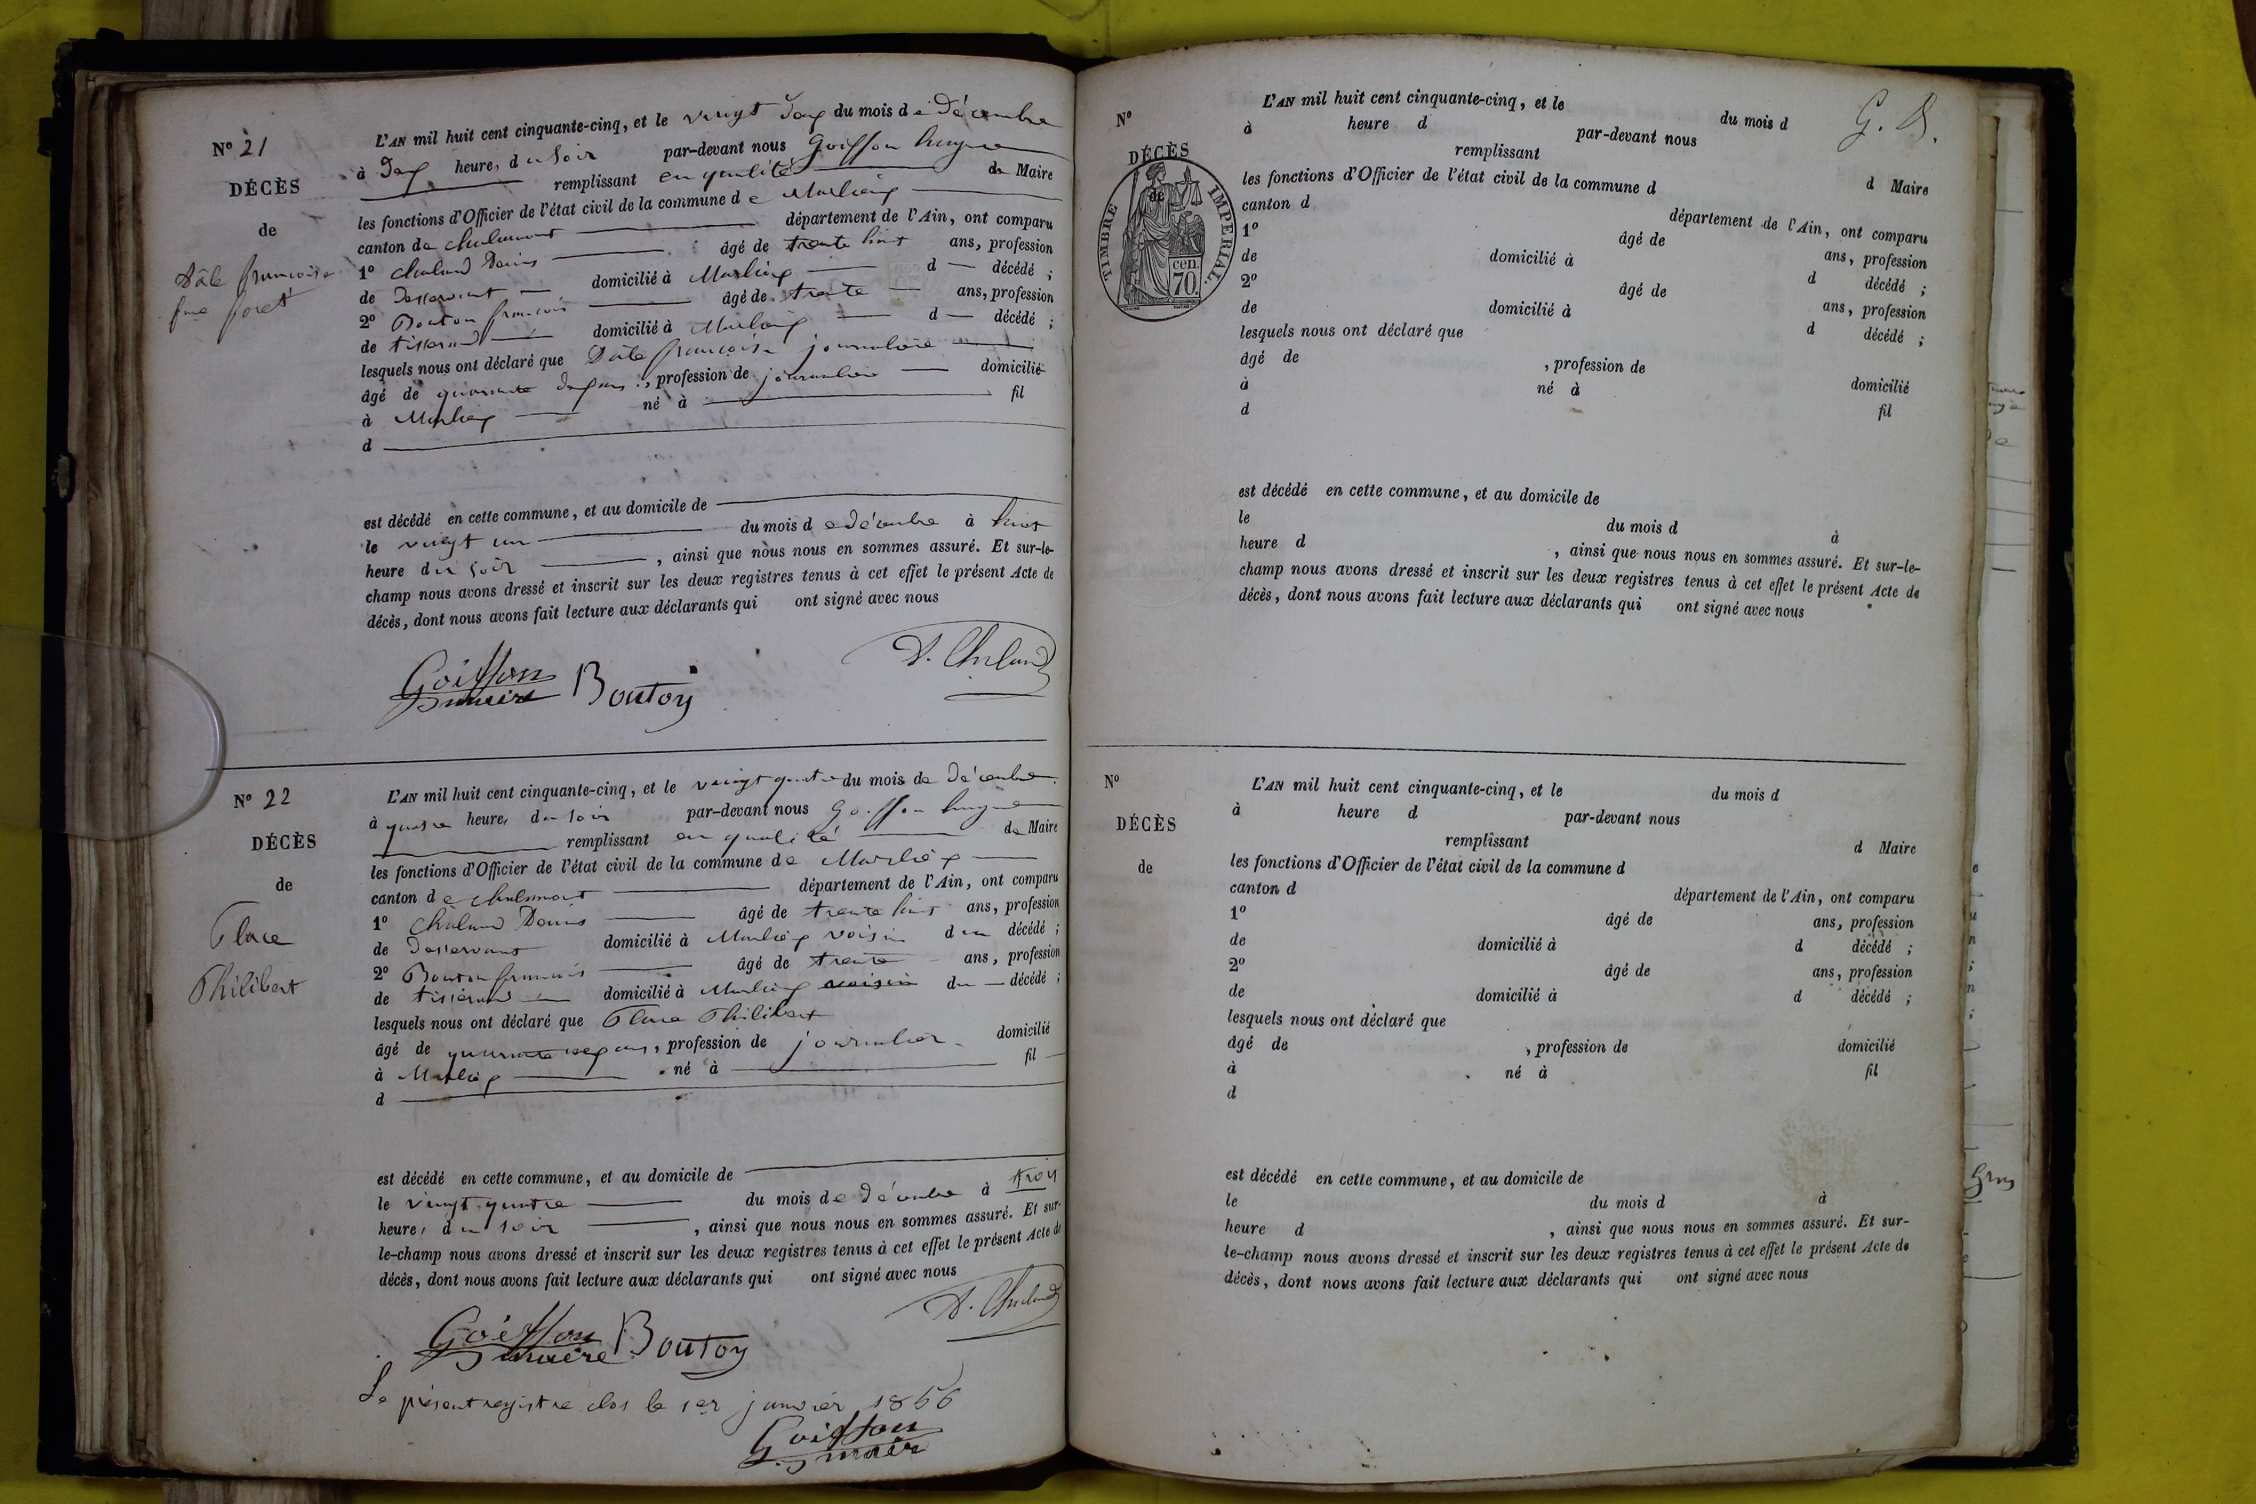 N° 21
DÉCÈS
de
Dâle françoise
fme foret
L'AN mil huit cent cinquante-cinq, et le vingt deux du mois de Décembre
à Deux heures du soir par-devant nous Goiffon hugue
remplissant en qualité de Maire
les fonctions d'Officier de l'état civil de la commune de Marlieux
canton de chalamont département de l'Ain, ont comparu
1° chaland Denis âgé de trente huit ans, profession
de desservant domicilié à Marlieux d décédé ;
2° Bouton françois âgé de trente ans, profession
de tisserand domicilié à Marlieux d décédé ;
lesquels nous ont déclaré que Dâle françoise journalière
âgé de quarante deux ans, profession de journalière domicilié
à Marlieux né à fil
d
est décédé en cette commune, et au domicile de
le vingt un du mois de décembre à huit
heure du soir, ainsi que nous nous en sommes assuré. Et sur-le-
champ nous avons dressé et inscrit sur les deux registres tenus à cet effet le présent Acte de
décès, dont nous avons fait lecture aux déclarants qui ont signé avec nous
Goiffon Bouton D. Chaland
maire
N° 22
DÉCÈS
de
Place
Philibert
L'AN mil huit cent cinquante-cinq, et le vingt quatre du mois de Décembre
à quatre heures du soir par-devant nous Goiffon hugue
remplissant en qualité de Maire
les fonctions d'Officier de l'état civil de la commune de Marlieux
canton de chalamont département de l'Ain, ont comparu
1° chaland Denis âgé de trente huit ans, profession
de desservant domicilié à Marlieux voisin du décédé ;
2° Bouton françois âgé de trente ans, profession
de tisserand domicilié à Marlieux voisin du décédé ;
lesquels nous ont déclaré que Place Philibert
âgé de quarante ans, profession de journalier domicilié
à Marlieux né à fil
d
est décédé en cette commune, et au domicile de
le vingt quatre du mois de décembre à trois
heures du soir, ainsi que nous nous en sommes assuré. Et sur-
le-champ nous avons dressé et inscrit sur les deux registres tenus à cet effet le présent Acte de
décès, dont nous avons fait lecture aux déclarants qui ont signé avec nous
Goiffon Bouton D. Chaland
maire
Le présent registre clos le 1er janvier 1856
Goiffon
maire
G. D.
N°
DÉCÈS
de
TIMBRE IMPERIAL.
cen.
70
L'AN mil huit cent cinquante-cinq, et le du mois d
à heure d par-devant nous
remplissant d Maire
les fonctions d'Officier de l'état civil de la commune d
canton d département de l'Ain, ont comparu
1° âgé de ans, profession
de domicilié à d décédé ;
2° âgé de ans, profession
de domicilié à d décédé ;
lesquels nous ont déclaré que
âgé de , profession de domicilié
à né à fil
d
est décédé en cette commune, et au domicile de
le du mois d à
heure d , ainsi que nous nous en sommes assuré. Et sur-le-
champ nous avons dressé et inscrit sur les deux registres tenus à cet effet le présent Acte de
décès, dont nous avons fait lecture aux déclarants qui ont signé avec nous
N°
DÉCÈS
de
L'AN mil huit cent cinquante-cinq, et le du mois d
à heure d par-devant nous
remplissant d Maire
les fonctions d'Officier de l'état civil de la commune d
canton d département de l'Ain, ont comparu
1° âgé de ans, profession
de domicilié à d décédé ;
2° âgé de ans, profession
de domicilié à d décédé ;
lesquels nous ont déclaré que
âgé de , profession de domicilié
à né à fil
d
est décédé en cette commune, et au domicile de
le du mois d à
heure d , ainsi que nous nous en sommes assuré. Et sur-
le-champ nous avons dressé et inscrit sur les deux registres tenus à cet effet le présent Acte de
décès, dont nous avons fait lecture aux déclarants qui ont signé avec nous